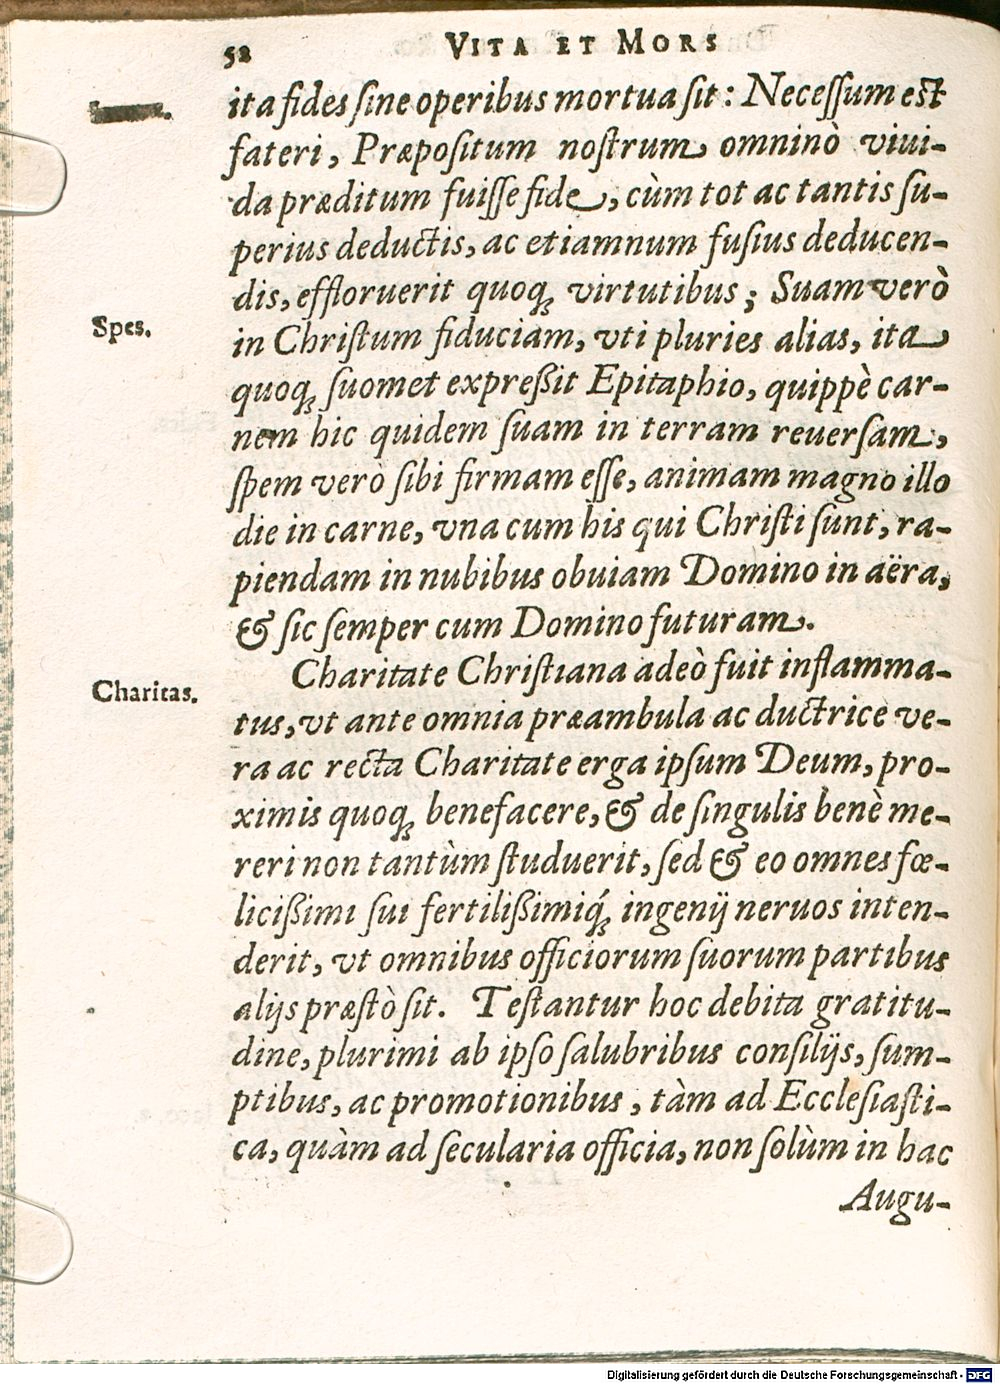 52 VITA ET MORS
ita fides sine operibus mortua sit: Necessum est
fateri, Præpositum nostrum omninò viui-
da præditum fuisse fide, cùm tot ac tantis su-
perius deductis, ac etiamnum fusius deducen-
dis, effloruerit quoq; virtutibus; Suam verò
Spes.
in Christum fiduciam, vti pluries alias, ita
quoq; suomet expreßit Epitaphio, quippè car-
nem hic quidem suam in terram reuersam,
spem verò sibi firmam esse, animam magno illo
die in carne, vna cum his qui Christi sunt, ra-
piendam in nubibus obuiam Domino in aëra,
& sic semper cum Domino futuram.
Charitate Christiana adeò fuit inflamma-
Charitas.
tus, vt ante omnia præambula ac ductrice ve-
ra ac recta Charitate erga ipsum Deum, pro-
ximis quoq; benefacere, & de singulis benè me-
reri non tantùm studuerit, sed & eo omnes fœ-
licißimi sui fertilißimiq́; ingenij neruos inten-
derit, vt omnibus officiorum suorum partibus
alijs præstò sit. Testantur hoc debita gratitu-
dine, plurimi ab ipso salubribus consilijs, sum-
ptibus, ac promotionibus, tàm ad Ecclesiasti-
ca, quàm ad secularia officia, non solùm in hac
Augu-
Digitalisierung gefördert durch die Deutsche Forschungsgemeinschaft - DFG